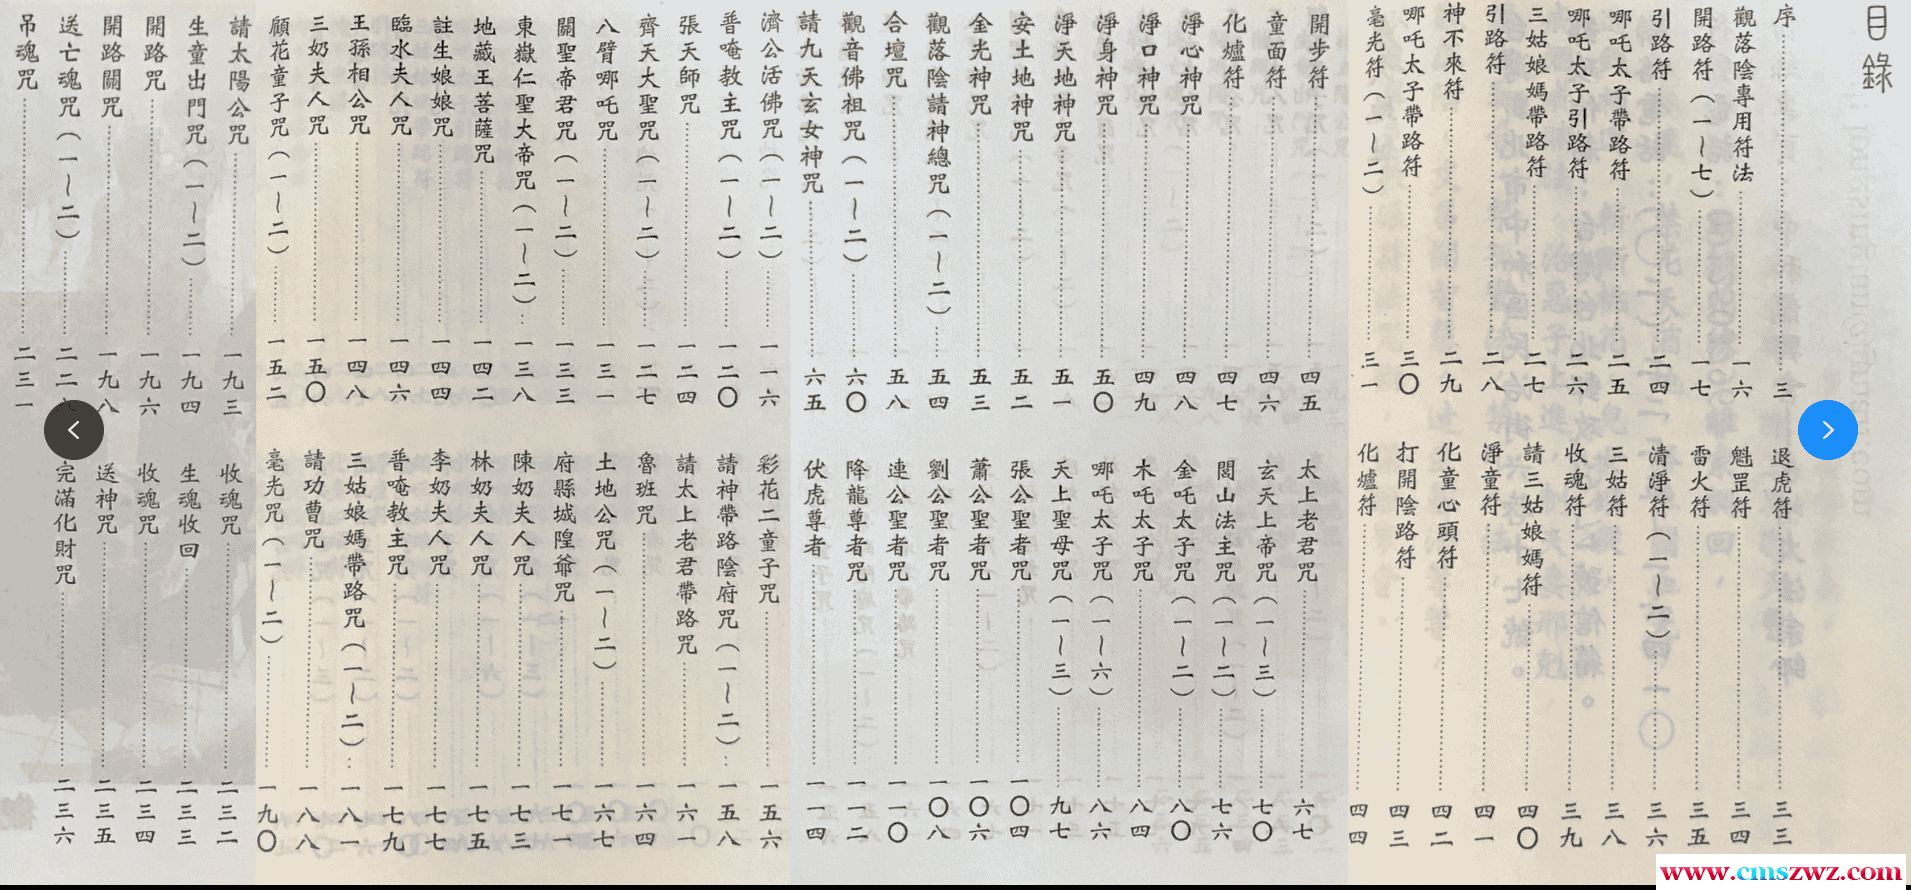 目錄
序 三
觀落陰專用符法 一六
開路符（一～七） 一七
引路符 二四
哪吒太子帶路符 二五
哪吒太子引路符 二六
三姑娘媽帶路符 二七
引路符 二八
神不來符 二九
哪吒太子帶路符 三〇
毫光符（一～二） 三一
退虎符 三三
魁罡符 三四
雷火符 三五
清淨符（一～二） 三六
三姑符 三八
收魂符 三九
請三姑娘媽符 四〇
淨童符 四一
化童心頭符 四二
打開陰路符 四三
化爐符 四四
開步符 四五
童面符 四六
化爐符 四七
淨心神咒 四八
淨口神咒 四九
淨身神咒 五〇
淨天地神咒 五一
安土地神咒 五二
金光神咒 五三
觀落陰請神總咒（一～二） 五四
合壇咒 五八
觀音佛祖咒（一～二） 六〇
請九天玄女神咒 六五
太上老君咒 六七
玄天上帝咒（一～三） 七〇
閭山法主咒（一～二） 七六
金吒太子咒（一～二） 八〇
木吒太子咒 八四
哪吒太子咒（一～六） 八六
天上聖母咒（一～三） 九七
張公聖者咒 一〇四
蕭公聖者咒 一〇六
劉公聖者咒 一〇八
連公聖者咒 一一〇
降龍尊者咒 一一二
伏虎尊者 一一四
濟公活佛咒（一～二） 一一六
普唵教主咒（一～二） 一二〇
張天師咒 一二四
齊天大聖咒（一～二） 一二七
八臂哪吒咒 一三一
關聖帝君咒（一～二） 一三三
東嶽仁聖大帝咒（一～二） 一三八
地藏王菩薩咒 一四二
註生娘娘咒 一四四
臨水夫人咒 一四六
王孫相公咒 一四八
三奶夫人咒 一五〇
顧花童子咒（一～二） 一五二
彩花二童子咒 一五六
請神帶路陰府咒（一～二） 一五八
請太上老君帶路咒 一六一
魯班咒 一六四
土地公咒（一～二） 一六七
府縣城隍爺咒 一七一
陳奶夫人咒 一七三
林奶夫人咒 一七五
李奶夫人咒 一七七
普唵教主咒 一七九
三姑娘媽帶路咒（一～二） 一八一
請功曹咒 一八八
毫光咒（一～二） 一九〇
請太陽公咒 一九三
生童出門咒（一～二） 一九四
開路咒 一九六
開路關咒 一九八
送亡魂咒（一～二） 二二
吊魂咒 二三一
收魂咒 二三二
生魂收回 二三三
收魂咒 二三四
送神咒 二三五
完滿化財咒 二三六
www.cmszwz.com